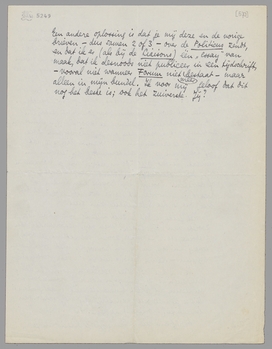 Een andere oplossing is dat je mij deze en de vorige
brieven – dus samen 2 of 3 – over de Politicus zendt,
en dat ik er (als bij de Liaisons) één "essay" van
maak, dat ik desnoods niet publiceer in een tijdschrift,
– vooral niet wanneer Forum niet bestaat – maar
alleen in mijn bundel. Ik voor mij geloof dat dit
nog het beste is; ook het zuiverste. Jij?